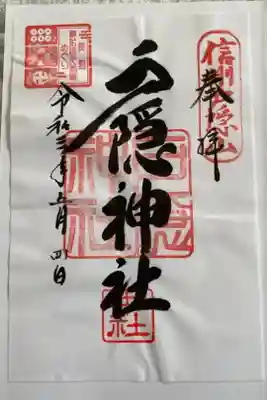 信州戸隠山
奉拝
戸隠神社
令和三年五月四日